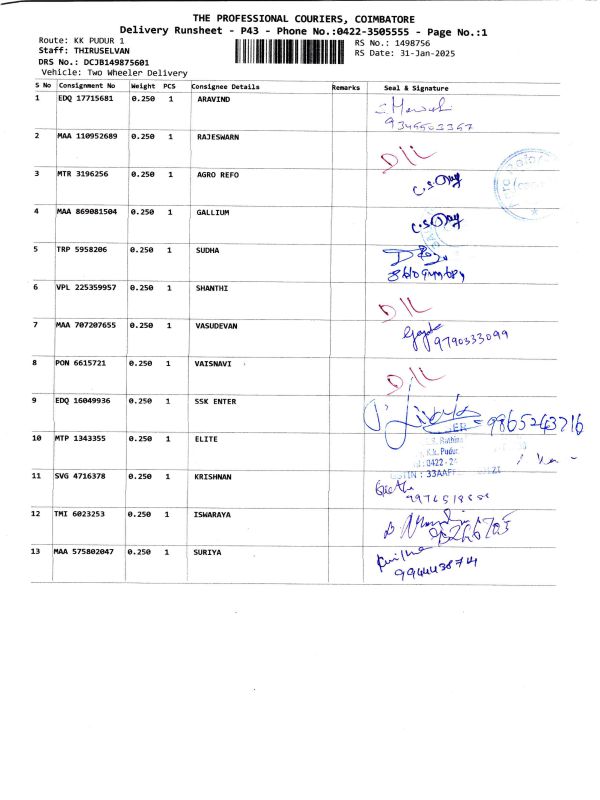 THE PROFESSIONAL COURIERS, COIMBATORE
Delivery Runsheet - P43 - Phone No.:0422-3505555 - Page No.:1
Route: KK PUDUR 1
RS No.: 1498756
Staff: THIRUSELVAN
RS Date: 31-Jan-2025
DRS No.: DCJB149875601
Vehicle: Two Wheeler Delivery
S No Consignment No Weight PCS Consignee Details Remarks Seal & Signature
1 EDQ 17715681 0.250 1 ARAVIND
2 MAA 110952689 0.250 1 RAJESWARN D/L
3 MTR 3196256 0.250 1 AGRO REFO
4 MAA 869081504 0.250 1 GALLIUM
5 TRP 5958206 0.250 1 SUDHA
6 VPL 225359957 0.250 1 SHANTHI D/L
7 MAA 707207655 0.250 1 VASUDEVAN 9790333099
8 PON 6615721 0.250 1 VAISNAVI D/L
9 EDQ 16049936 0.250 1 SSK ENTER 9865243716
10 MTP 1343355 0.250 1 ELITE
K.K. Pudur,
11 SVG 4716378 0.250 1 KRISHNAN
12 TMI 6023253 0.250 1 ISWARAYA
13 MAA 575802047 0.250 1 SURIYA
9944438774